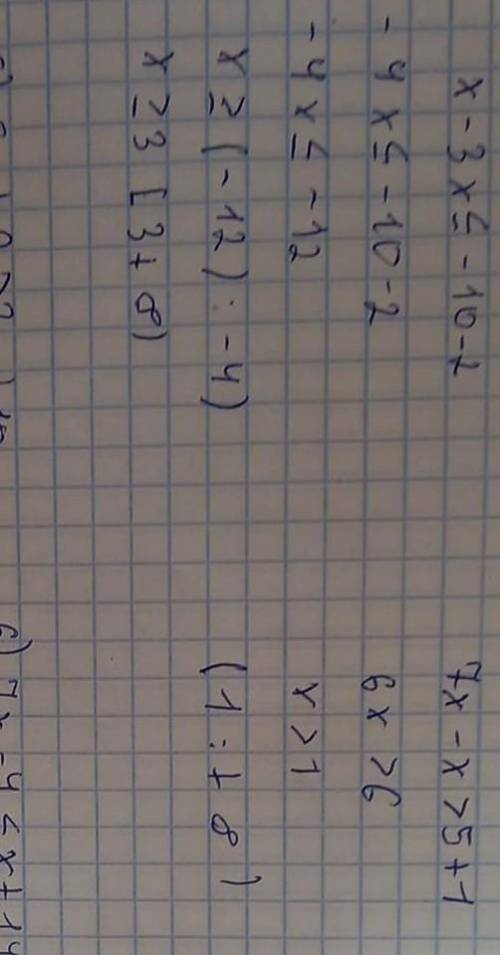 x - 3x ≤ - 10 - 2
- 4x ≤ - 10 - 2
- 4x ≤ - 12
x ≥ (- 12) : - 4)
x ≥ 3 [3 + ∞)
7x - x > 5 + 1
6x > 6
x > 1
(1 : + ∞)
6) 7x - 4 ≤ x + 14